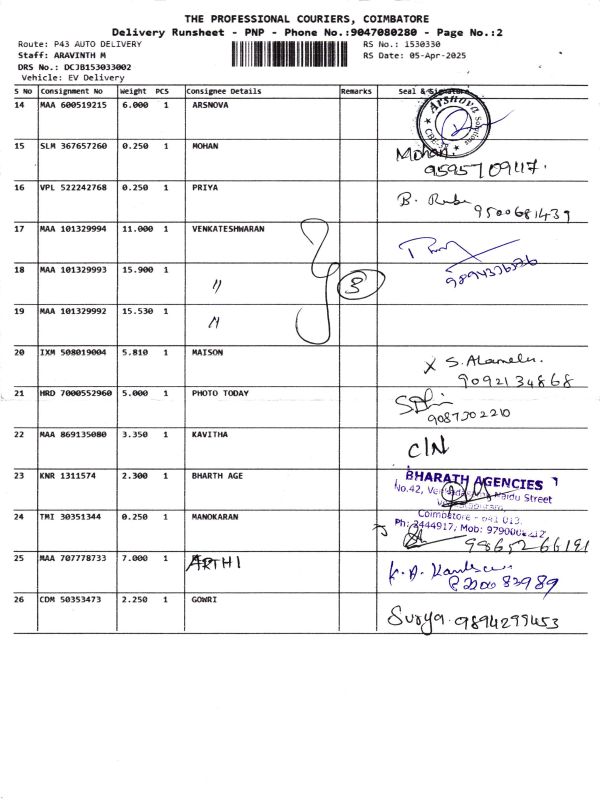 THE PROFESSIONAL COURIERS, COIMBATORE
Delivery Runsheet - PNP - Phone No.:9047080280 - Page No.:2
Route: P43 AUTO DELIVERY RS No.: 1530330
Staff: ARAVINTH M RS Date: 05-Apr-2025
DRS No.: DCJB153033002
Vehicle: EV Delivery
S No Consignment No Weight PCS Consignee Details Remarks Seal & Signature
14 MAA 600519215 6.000 1 ARSNOVA
Arsnova Solutions
15 SLM 367657260 0.250 1 MOHAN Mohan.
9595709117.
16 VPL 522242768 0.250 1 PRIYA B.
9500681439
17 MAA 101329994 11.000 1 VENKATESHWARAN
18 MAA 101329993 15.900 1 〃 3
19 MAA 101329992 15.530 1 〃
20 IXM 508019004 5.810 1 MAISON X S. Alamelu.
9092134868
21 HRD 7000552960 5.000 1 PHOTO TODAY
9087302210
22 MAA 869135080 3.350 1 KAVITHA C/N
23 KNR 1311574 2.300 1 BHARTH AGE BHARATH AGENCIES
No.42, Naidu Street
24 TMI 30351344 0.250 1 MANOKARAN Coimbatore - 641 013.
Ph: 2444917, Mob:
9865266191
25 MAA 707778733 7.000 1 ARTHI
26 CDM 50353473 2.250 1 GOWRI Surya. 9894299453